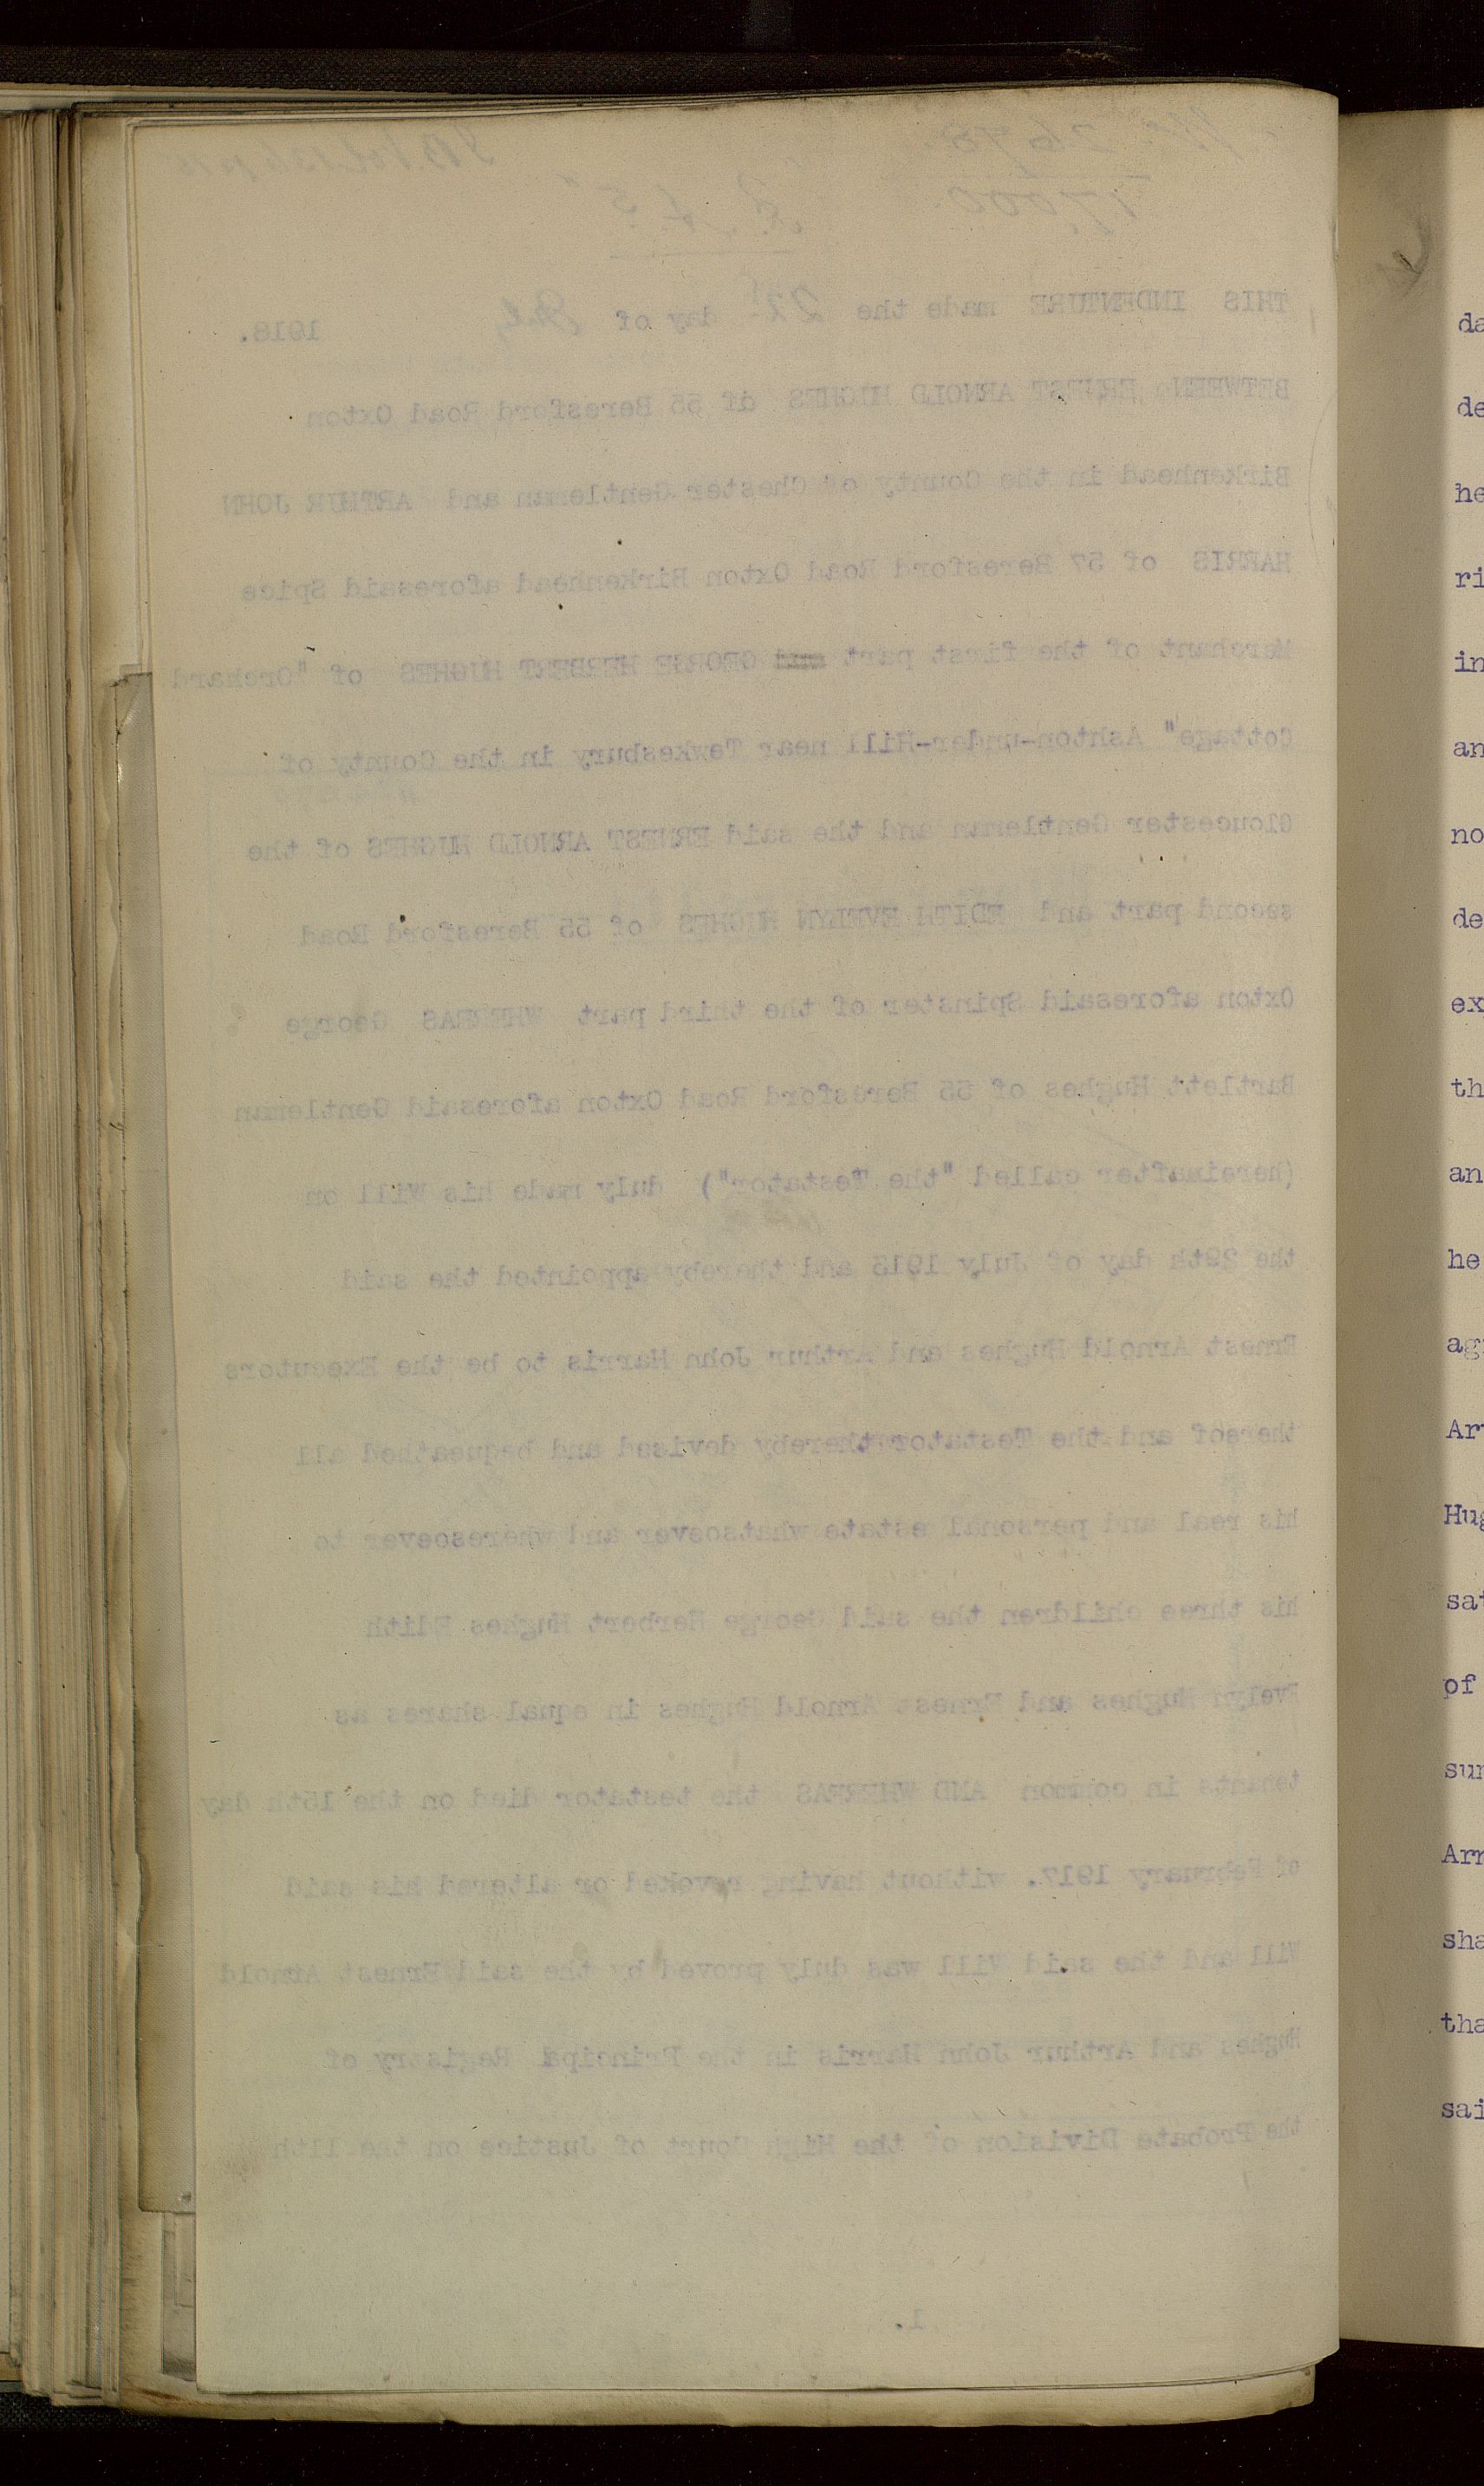 THIS INDENTURE made the 22 day of 1918.
BETWEEN ERNEST ARNOLD HUGHES of 55 Beresford Road Oxton
Birkenhead in the County of Chester Gentleman and ARTHUR JOHN
HARRIS of 57 Beresford Road Oxton Birkenhead aforesaid Spice
Merchant of the first part and GEORGE HERBERT HUGHES of "Orchard
Cottage" Ashton-under-Hill near Tewkesbury in the County of
Gloucester Gentleman and the said ERNEST ARNOLD HUGHES of the
second part and EDITH EVELYN HUGHES of 55 Beresford Road
Oxton aforesaid Spinster of the third part WHEREAS George
Bartlett Hughes of 55 Beresford Road Oxton aforesaid Gentleman
(hereinafter called "the Testator") duly made his Will on
the 29th day of July 1915 and thereby appointed the said
Ernest Arnold Hughes and Arthur John Harris to be the Executors
thereof and the Testator thereby devised and bequeathed all
his real and personal estate whatsoever and wheresoever to
his three children the said George Herbert Hughes Edith
Evelyn Hughes and Ernest Arnold Hughes in equal shares as
tenants in common AND WHEREAS the testator died on the 15th day
of February 1917. without having revoked or altered his said
Will and the said Will was duly proved by the said Ernest Arnold
Hughes and Arthur John Harris in the Principal Registry of
the Probate Division of the High Court of Justice on the 11th
1.
da
de
he
ri
in
an
no
de
ex
th
an
he
ag
Ar
Hug
sa
of
sur
Arr
sha
tha
sai